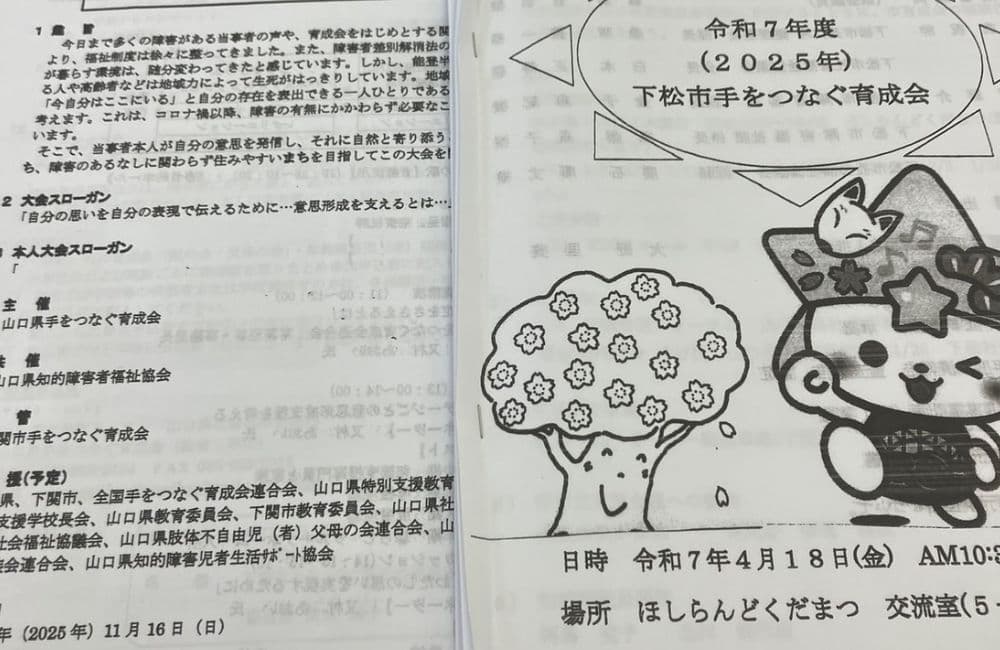 1 趣 旨
今日まで多くの障害がある当事者の声や、育成会をはじめとする関
より、福祉制度は徐々に整ってきました。また、障害者差別解消法の
が暮らす環境は、随分変わってきたと感じています。しかし、能登半
る人や高齢者などは地域力によって生死がはっきりしています。地域
「今自分はここにいる」と自分の存在を表出できる一人ひとりである
考えます。これは、コロナ禍以降、障害の有無にかかわらず必要なこ
います。
そこで、当事者本人が自分の意思を発信し、それに自然と寄り添う
ち、障害のあるなしに関わらず住みやすいまちを目指してこの大会を
2 大会スローガン
「自分の思いを自分の表現で伝えるために…意思形成を支えるとは…
本人大会スローガン
「
主 催
山口県手をつなぐ育成会
共 催
山口県知的障害者福祉協会
管
関市手をつなぐ育成会
援(予定)
県、下関市、全国手をつなぐ育成会連合会、山口県特別支援教育
支援学校長会、山口県教育委員会、下関市教育委員会、山口県社
社会福祉協議会、山口県肢体不自由児（者）父母の会連合会、山
会連合会、山口県知的障害児者生活サポート協会
年（2025年）11月16日（日）
令和７年度
（２０２５年）
下松市手をつなぐ育成会
日時 令和７年４月１８日(金) AM10:3
場所 ほしらんどくだまつ 交流室(５-